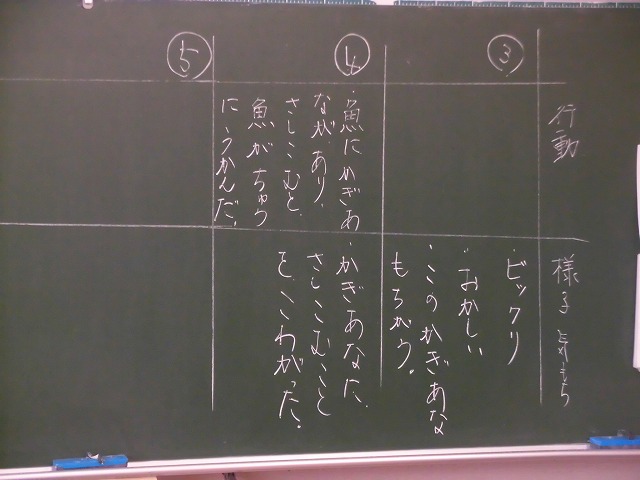 行動
様子 気もち
③
・ビックリ
・おかしい
・このかぎあな
もちがう。
④
・魚にかぎあ
ながあり、
さしこむと、
魚がちゅう
にうかんだ。
・かぎあなに、
さしこむこと
を、こわがった。
⑤